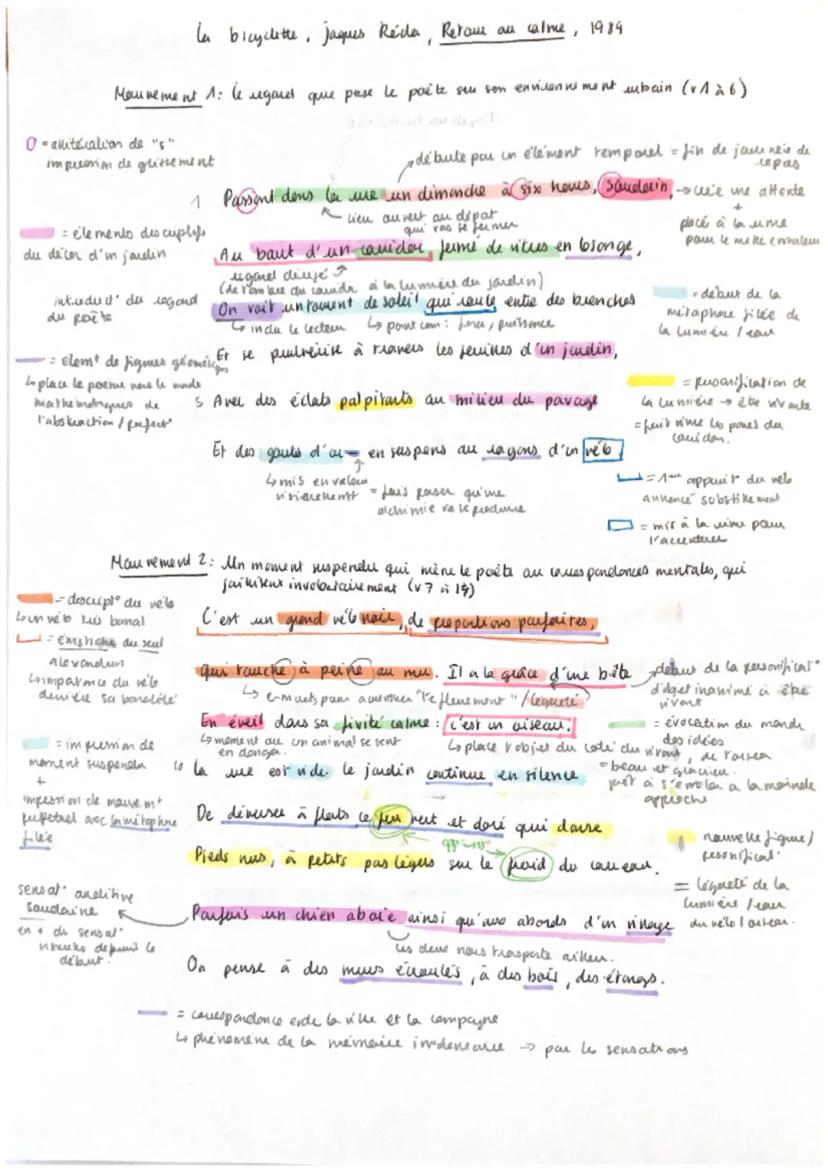 La bicyclette, Jaques Réda, Retour au calme, 1989
Mouvement 1: le regard que pose le poète sur son environnement urbain (v1 à 6)
O = allitération de "s"
impression de glissement
débute par un élément temporel = fin de journée de repas
1 Passant dans la rue un dimanche à six heures, soudain,
→ crée une attente
+
placé à la rime
pour le mettre en valeur
lieu ouvert au départ
qui vas se fermer
= éléments descriptifs
du décor d'un jardin
Au bout d'un couidor fermé de vitres en losange,
regard dirigé
(de l'ombre du couidor à la lumière du jardin)
introduct° du regard
du poète
On voit un torrent de soleil qui roule entre des branches
↳ inclu le lecteur ↳ point com: force / puissance
= début de la
métaphore filée de
la lumière / eau
= élémt de figures géométriques
↳ place le poème vers le monde
mathématiques de
l'abstraction / parfait
Et se pulvérise à travers les feuilles d'un jardin,
5 Avec des éclats palpitants au milieu du pavage
= Personification de
la lumière → être vivante
= fait vivre les pavés du
couidor.
Et des gouts d'or – en suspens au rayons d'un vélo
↳ mis en valeur
visiblement = fais penser qu'une
alchimie va se produire
= 1ère apparit° du vélo
annoncé subtilement
= mis à la rime pour
l'accentuer
Mouvement 2: Un moment suspendu qui mène le poète au correspondances mentales, qui
jaillissent involontairement (v7 à 14)
= descript° du vélo
↳ un vélo très banal
C'est un grand vélo noir, de proportions parfaites,
= emphase du seul
alexandrin
↳ importance du vélo
derrière sa banalité
Qui touche à peine au mur. Il a la grâce d'une bête
↳ e muets pour accentuer "l'effleurement" / légèreté
début de la personificat°
d'objet inanimé à être
vivant
En éveil dans sa fixité calme: c'est un oiseau.
↳ moment où un animal se sent
en danger.
↳ place l'objet du coté du vivant, de l'oiseau
= beau et gracieux.
prêt à s'envoler à la moindre
approche
= évocation du monde
des idées
= impression de
moment suspendu
+
impression de mouvemt
perpétuel avec la métaphore
filée
10 la rue est vide. le jardin continue en silence
De déverser à flots ce feu vert et doré qui danse
opposit°
Pieds nus, à petits pas légers sur le froid du carreau.
nouvelle figure /
personificat°
= légèreté de la
lumière / eau
du vélo / oiseau.
sensat° auditive
soudaine
en + du sensat°
visuelles depuis le
début.
Parfois un chien aboie ainsi qu'aux abords d'un village
ces deux nous transporte ailleur.
On pense à des murs écroulés, à des bois, des étangs.
= correspondance entre la ville et la campagne
↳ phénomène de la mémoire involontaire → par les sensations